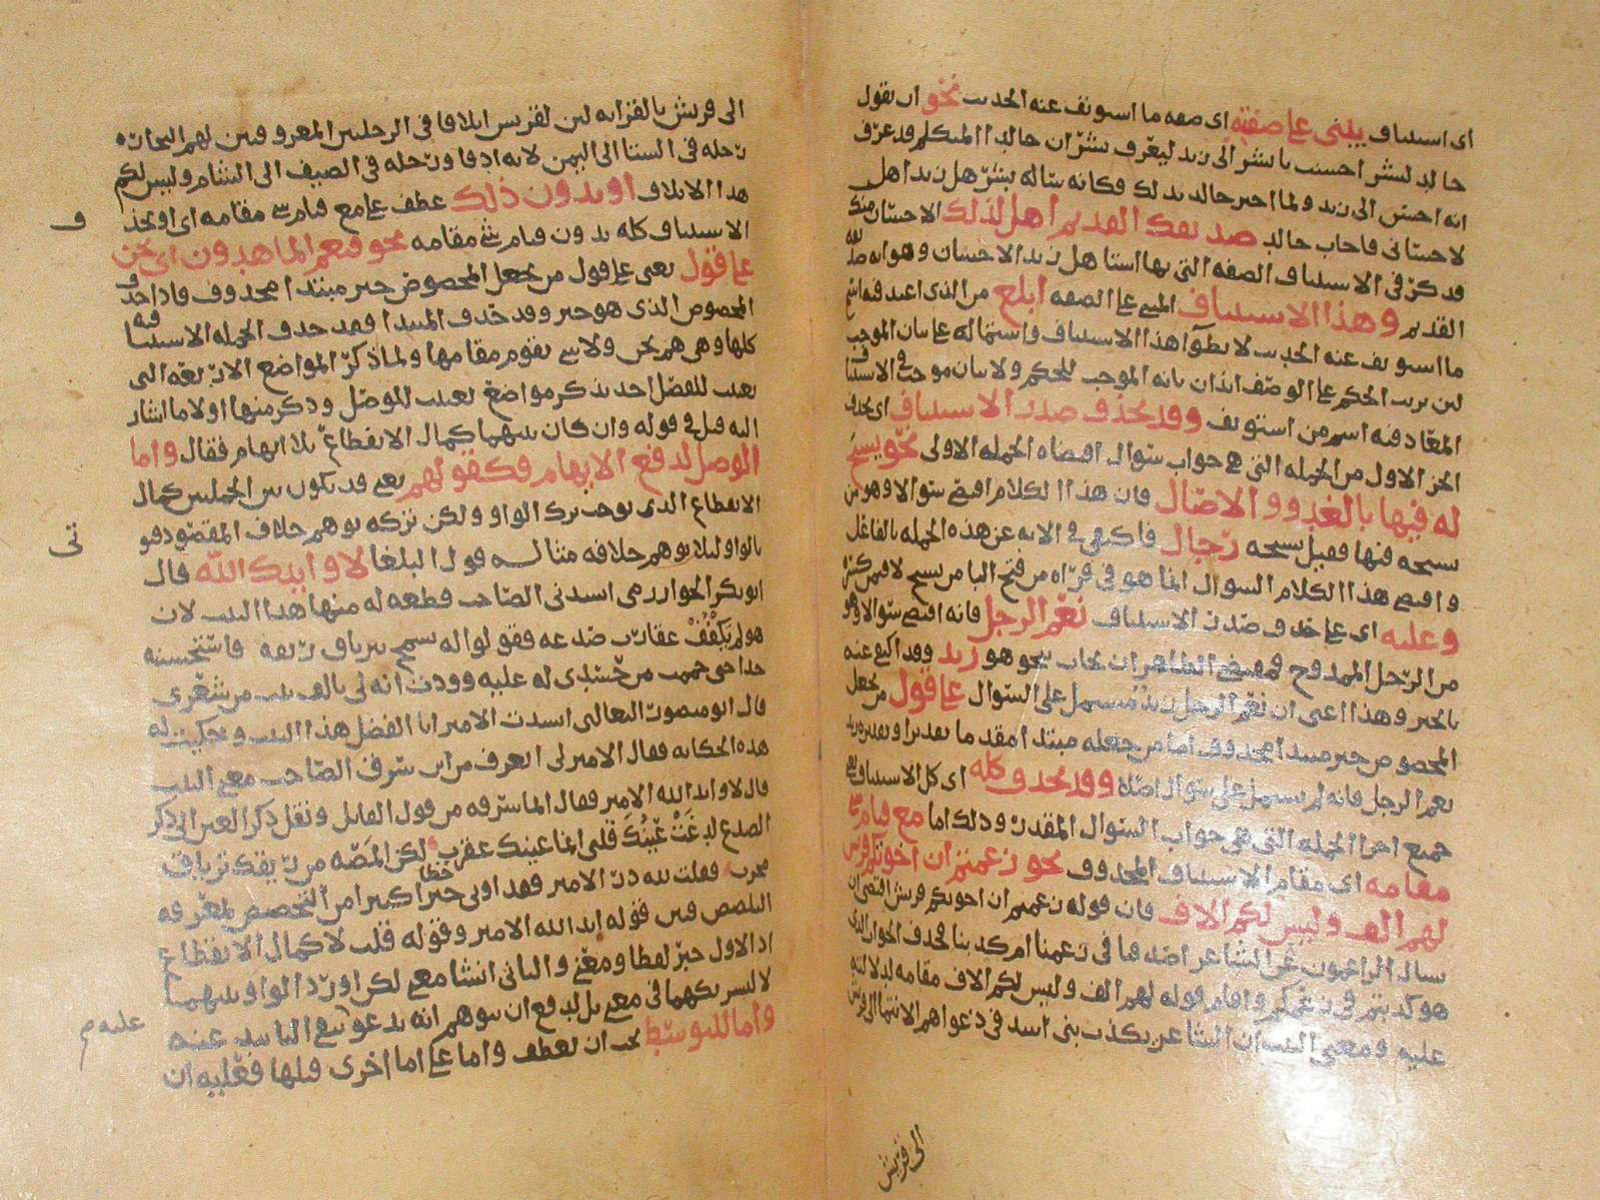 اى استيناف يبنى على صفته اى صفه ما استونف عنه الحديث نحو ان يقول
خالد لبشر احسنت يا بشر الى زيد ليعرف بشر ان خالدا المتكلم قد عرف
انه احسن الى زيد ولما اخبر خالد بذلك فكانه ساله بشر هل زيد اهل
لاحسانى فاجاب خالد صديقك القديم اهل لذلك الاحسان منك
قد ذكر فى الاستيناف الصفه التى بها استاهل زيد الاحسان وهو انه صديقه
القديم وهذا الاستيناف المبنى على الصفه ابلغ من الذى اعيد فيه اسم
ما استونف عنه الحديث لانطوآ هذا الاستيناف واشتماله على بيان الموجب
لان ترتب الحكم على الوصف ايذان بانه الموجب للحكم ولا بيان موجب فى الاستيناف
المعاد فيه اسم من استونف وقد يحذف صدر الاستيناف اى يحذف
الجز الاول من الجمله التى هى جواب سوال اقتضاه الجمله الاولى نحو يسبح
له فيها بالغدو والاصال فان هذا الكلام اقتضى سوالا وهو من
يسبحه فيها فقيل يسبحه رجال فاكتفى فى الايه عن هذه الجمله بالفاعل
واقتضى هذا الكلام السوال انما هو فى قراه من فتح البا من يسبح لا فيمن كسرها
وعليه اى على حذف صدر الاستيناف نعم الرجل فانه اقتضى سوالا وهو
من الرجل الممدوح فمقتضى الظاهر ان يجاب بنحو هو زيد وقد اكتفى عنه
بالخبر وهذا اعنى ان نعم الرجل زيد مشتمل على السوال على قول من يجعل
المخصوص خبر مبتدا محذوف اما من جعله مبتدا مقدما تقديرا وتقديره زيد
نعم الرجل فانه لم يشتمل على سوال اصلا وقد يحذف كله اى كل الاستيناف يعنى
جميع اجزا الجمله التى هى جواب السوال المقدر وذلك اما مع قيام شى
مقامه اى مقام الاستيناف المحذوف نحو زعمتم ان اخوتكم قريش
لهم الف وليس لكم الاف فان قوله زعمتم ان اخوتكم قريش اقتضى ان
يسال الزاعمون عن الشاعر اصدقنا فى زعمنا ام كذبنا فحذف الجواب الذى
هو كذبتم فى زعمكم واقام قوله لهم الف وليس لكم الاف مقامه لدلالته
عليه ومعنى البيت ان الشاعر يكذب بنى اسد فى دعواهم الانتما الى قريش
الى قريش
الى قريش بالقرابه لان لقريش ايلافا فى الرحلتين المعروفتين لهم للتجاره
رحله فى الشتا الى اليمن لانه ادفا ورحله فى الصيف الى الشام وليس لكم
هذا الايلاف او بدون ذلك عطف على مع قيام شى مقامه اى او يحذف
الاستيناف كله بدون قيام شى مقامه نحو فنعم الماهدون اى نحن
على قول يعنى على قول من يجعل المخصوص خبر مبتدا محذوف فاذا حذف
المخصوص الذى هو خبر وقد حذف المبتدا فقد حذف الجمله الاستينافيه
كلها وهى هم نحن ولا شى يقوم مقامها ولما ذكر المواضع الاربعه التى
تعينت للفصل اخذ يذكر مواضع تعينت للوصل وذكر منها اولا ما اشار
اليه قبل فى قوله وان كان بينهما كمال الانقطاع بلا ايهام فقال واما
الوصل لدفع الايهام فكقولهم يعنى قد يكون بين الجملتين كمال
الانقطاع الذى يوجب ترك الواو ولكن تركه يوهم خلاف المقصود فوتى
بالواو ليلا يوهم خلافه مثاله قول البلغا لا وايدك الله قال
ابو بكر الخوارزمى انشدنى الصاحب قطعه له منها هذا البيت لان
هو لم يكفف عقارب صدغه فقولوا له يسمح بترياق ريقه فاستحسنته
جدا حتى حممت من حسدى له عليه ووددت انه لى بالف بيت من شعرى
قال ابو منصور الثعالبى انشدت الامير ابا الفضل هذا البيت وحكيت له
هذه الحكايه فقال الامير لى اتعرف من اين سرق الصاحب معنى البيت
قال لا وايد الله الامير فقال انما سرقه من قول القايل ونقل ذكر العين الى ذكر
الصدغ لدغت عينك قلبى انما عينك عقرب لكن المصه من ريقك ترياق
مجرب فقلت لله در الامير فقد اوتى حظا كبيرا من التخصص لمعرفه
التلصص فبين قوله ايد الله الامير وقوله قلت لا كمال الانقطاع
اذ الاول خبر لفظا ومعنى والثانى انشا معنى لكن اورد الواو بينهما
لا لتشريكهما فى معنى بل لدفع ان يتوهم انه يدعو بنفى التاييد عنه
واما للتوسط يجب ان يعطف واما على اما اخرى قبلها فعليه ان
ف
تى
عليه م